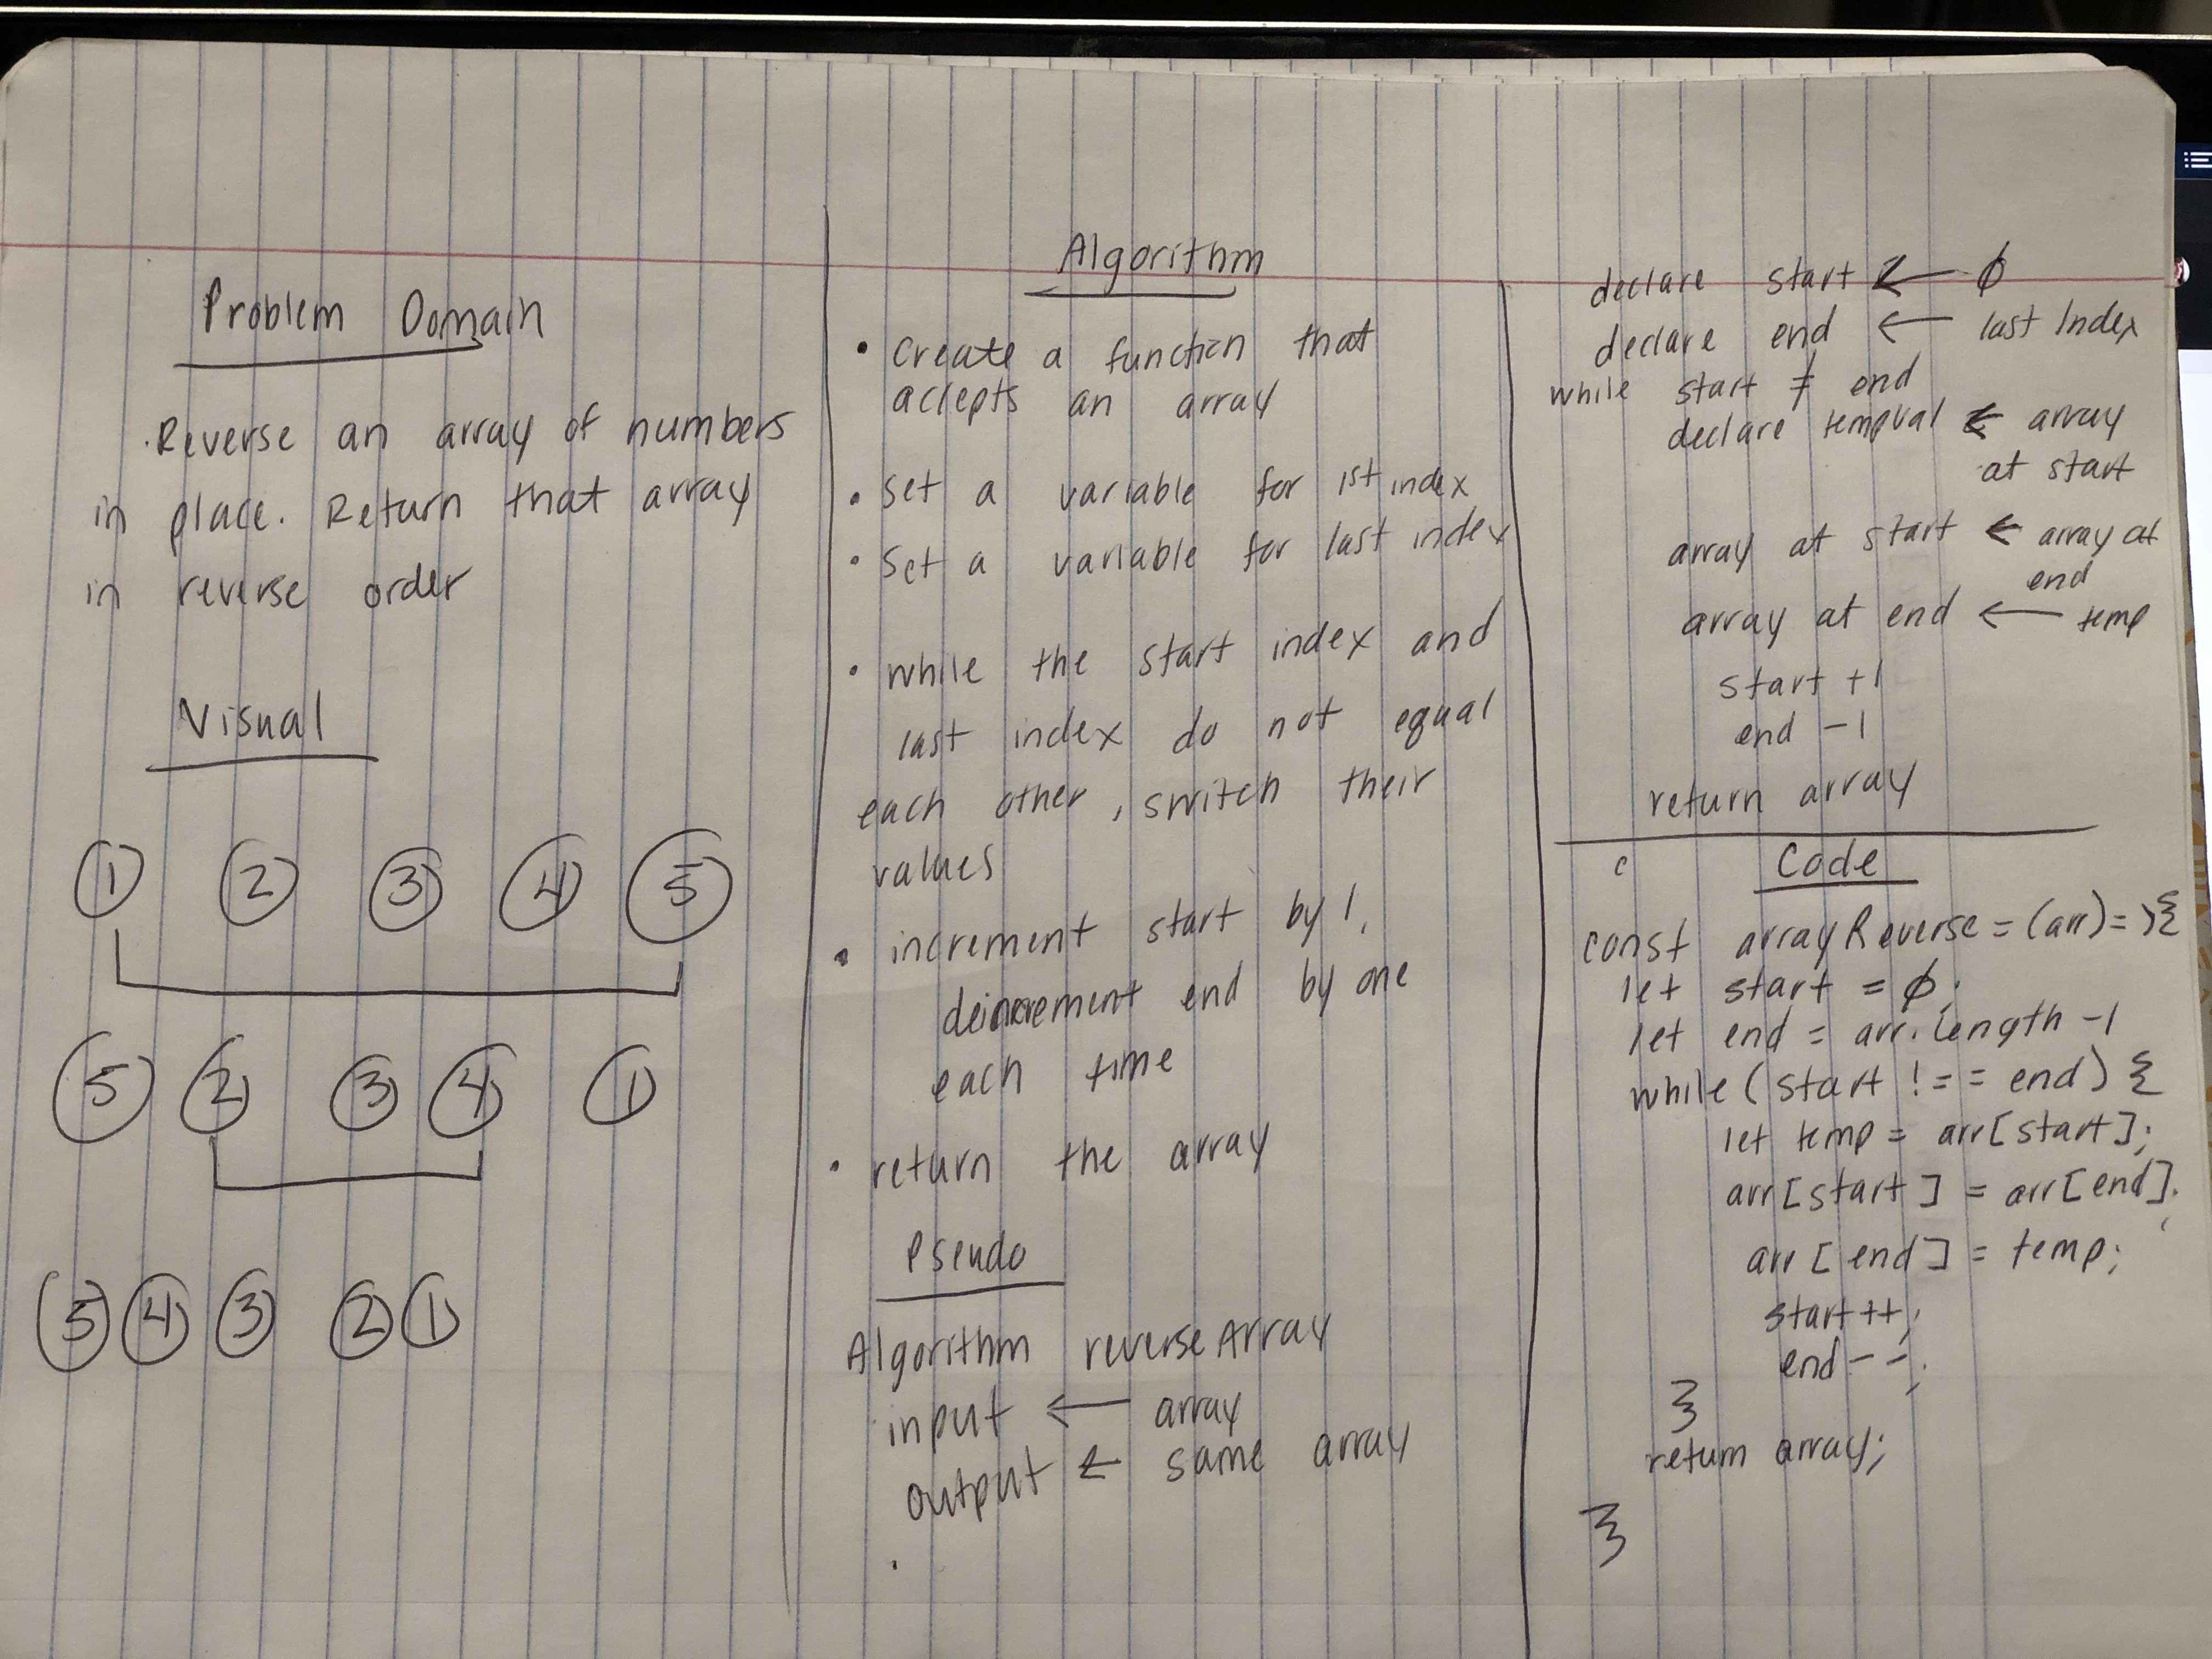 Problem Domain
.Reverse an array of numbers
in place. Return that array
in reverse order
Visual
1 2 3 4 5
5 2 3 4 1
5 4 3 2 1
Algorithm
• Create a function that
accepts an array
• set a variable for 1st index
• Set a variable for last index
• while the start index and
last index do not equal
each other, switch their
values
• increment start by 1,
deincrement end by one
each time
• return the array
Pseudo
Algorithm reverseArray
input ← array
output ← same array
.
declare start ← ø
declare end ← last Index
while start ≠ end
declare tempval ← array
at start
array at start ← array at
end
array at end ← temp
start +1
end -1
return array
c Code
const arrayReverse = (arr)=>{
let start = ø;
let end = arr.length -1
while (start !== end) {
let temp = arr[start];
arr[start] = arr[end];
arr[end] = temp;
start++;
end--;
}
return array;
}